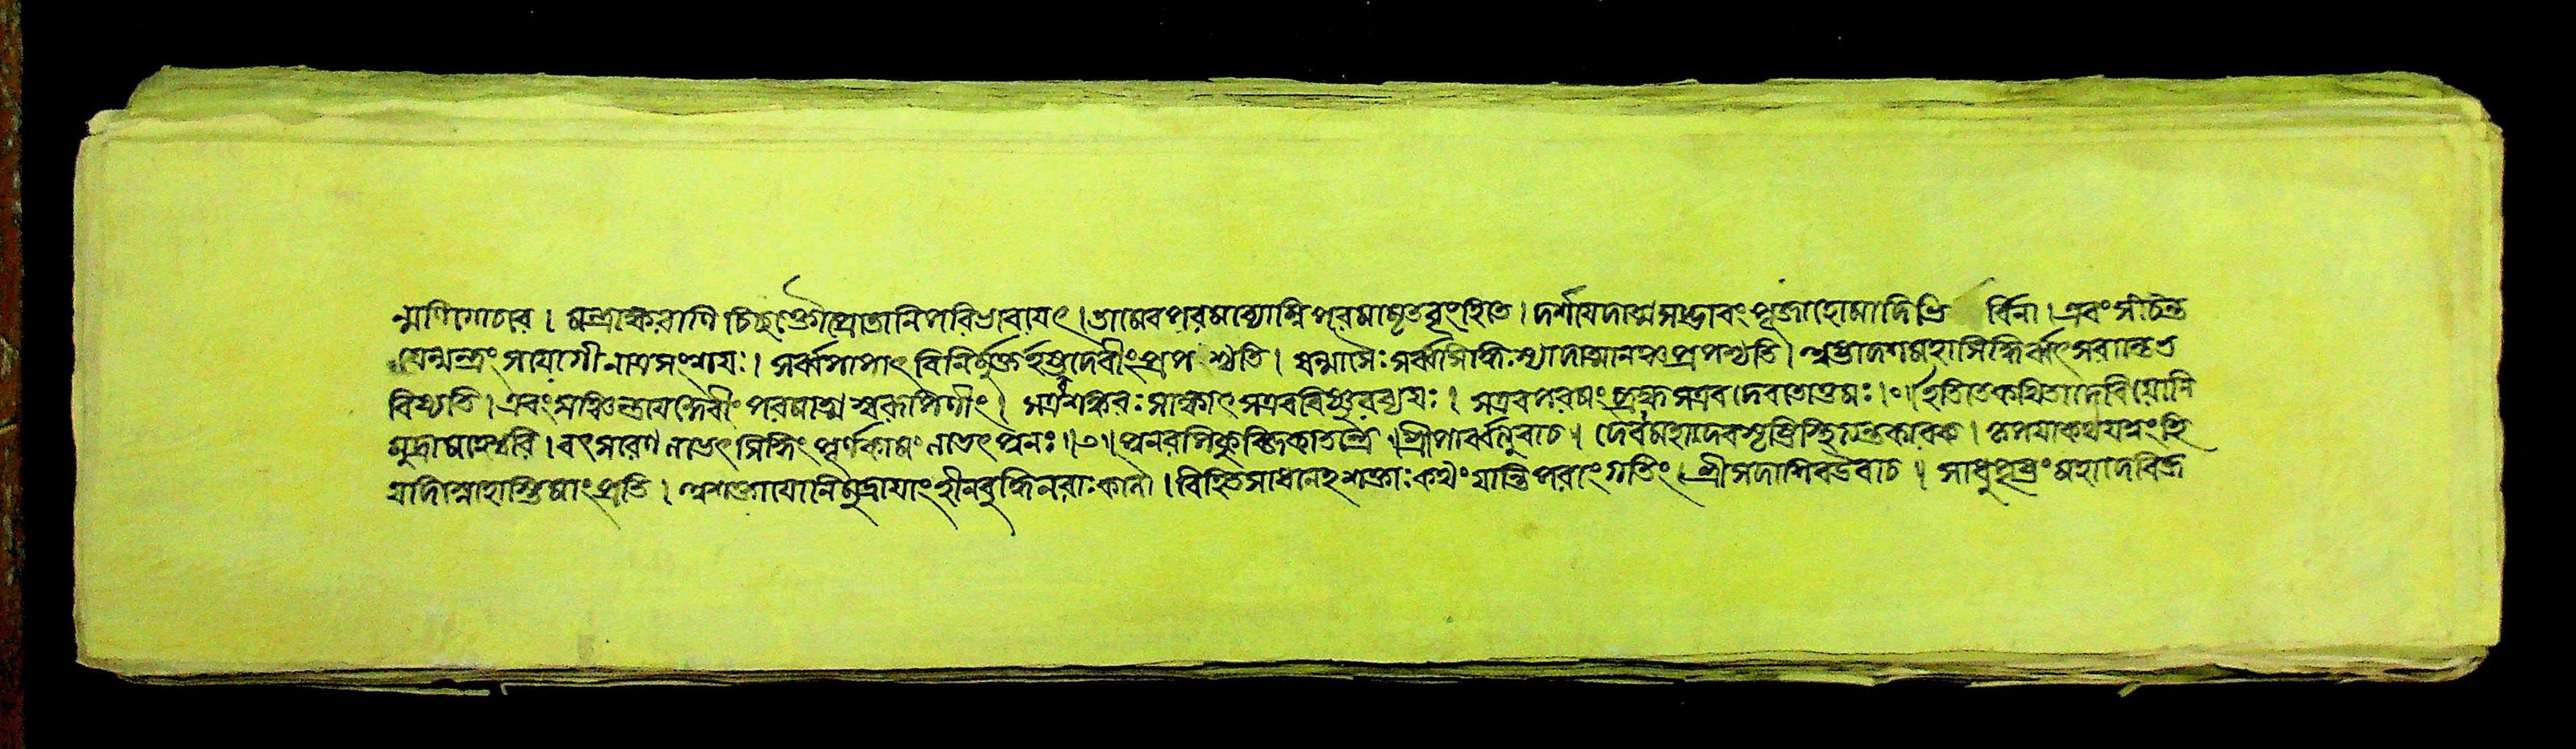 ন্মণিগোচরে । মন্ত্রাক্ষরাণি চিচ্ছক্তৌ প্রোতানি পরিভাবয়েৎ । তামেব পরমব্যোম্নি পরমামৃতবৃংহিতে । দর্শয়েদাত্মসদ্ভাবং পূজাহোমাদিভি র্বিনা । এবং সংচিন্ত
যেন্মন্ত্রং স যোগী নাত্র সংশয়ঃ । সর্ব্বপাপাৎ বিনির্ম্মুক্ত দেবীং প্রপশ্যতি । ষন্মাসৈঃ সর্ব্বসিদ্ধিঃ স্যাদাত্মানঞ্চ প্রপশ্যতি । মহাসিদ্ধি
বিষ্যতি । এবং সঞ্চিন্তয়েদ্দেবীং পরমাত্মস্বরূপিণীং । স এব শঙ্করঃ সাক্ষাৎ স এব বিষ্ণুরব্যয়ঃ । স এব পরমং ব্রহ্ম স এব দেবতোত্তমঃ । ইতি তে কথিতা দেবি যোনি
মুদ্রা মহেশ্বরি । বৎসরেণ লভেৎ সিদ্ধিং পূর্ণকামং লভেৎ পুনঃ । পুনরপি কুব্জিকাতন্ত্রে । শ্রীপার্ব্বত্যুবাচ । দেবদেব মহাদেব সৃষ্টিস্থিত্যন্তকারক । কৃপয়া কথয়
যদি স্নেহোস্তি মাং প্রতি । যোনিমুদ্রায়াং হীনবুদ্ধি নরাঃ কলৌ । বিহিত সাধনেহশক্তাঃ কথং যান্তি পরাং গতিং । শ্রীসদাশিব উবাচ । সাধু পৃষ্টং মহাদেবি